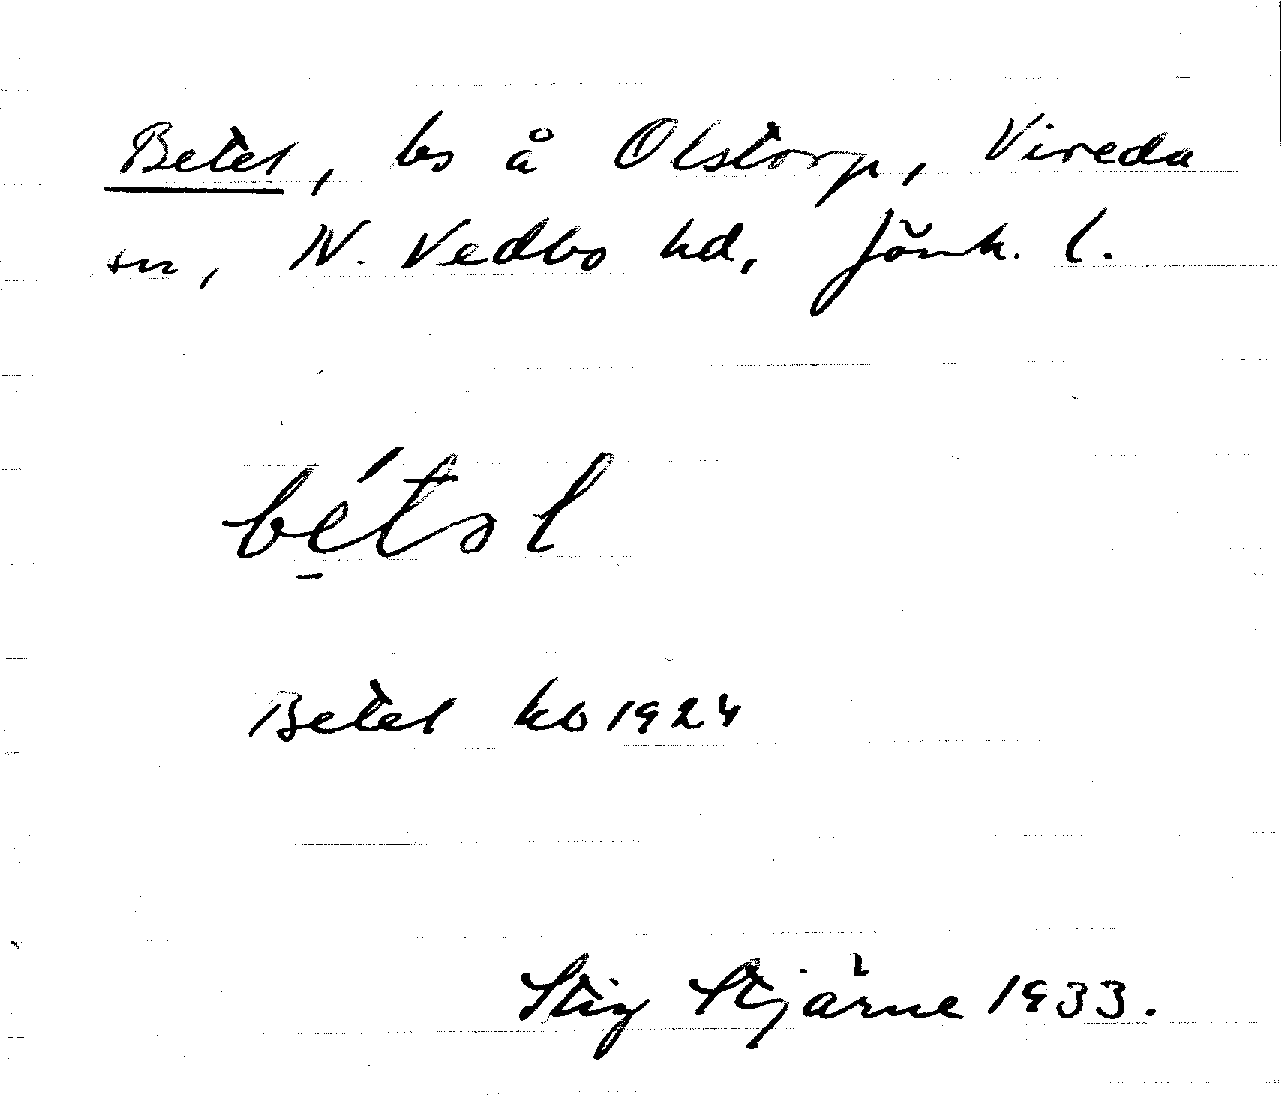 Betel, bs å Olstorp, Vireda
sn, N. Vedbo hd, Jönk. l.
bé̱təl
Betel kb 1924
Stig Stjärne 1933.